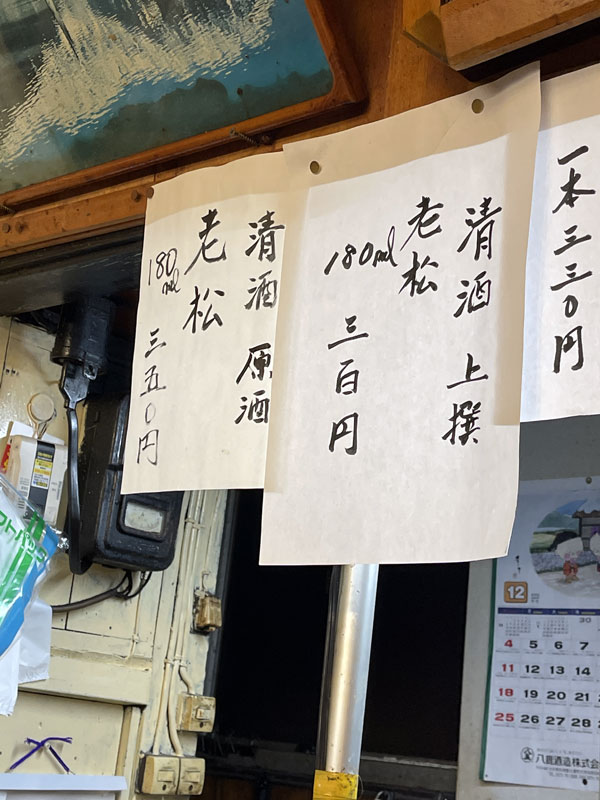 一本三三〇円
清酒 上撰
老松
180ml 三百円
清酒 原酒
老松
180ml
三五〇円
12
30
4 5 6 7
11 12 13 14
18 19 20 21
25 26 27 28
八鹿酒造株式